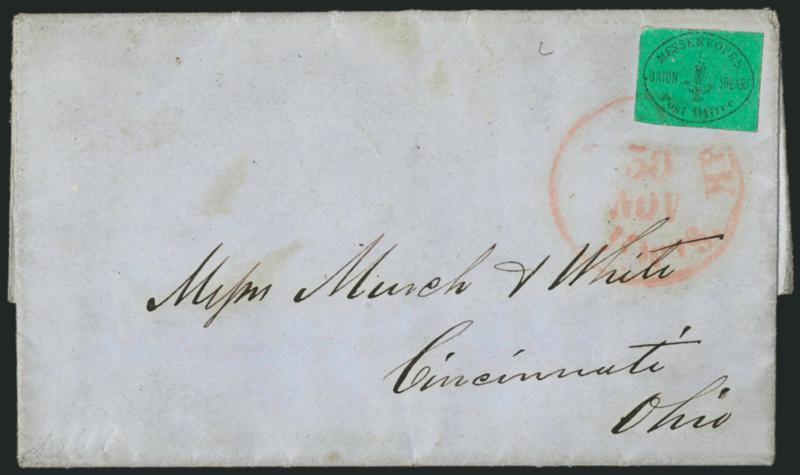 MESSENKOPE'S
UNION SQUARE
POST OFFICE
30
NOV
Messrs Murch & White
Cincinnati
Ohio